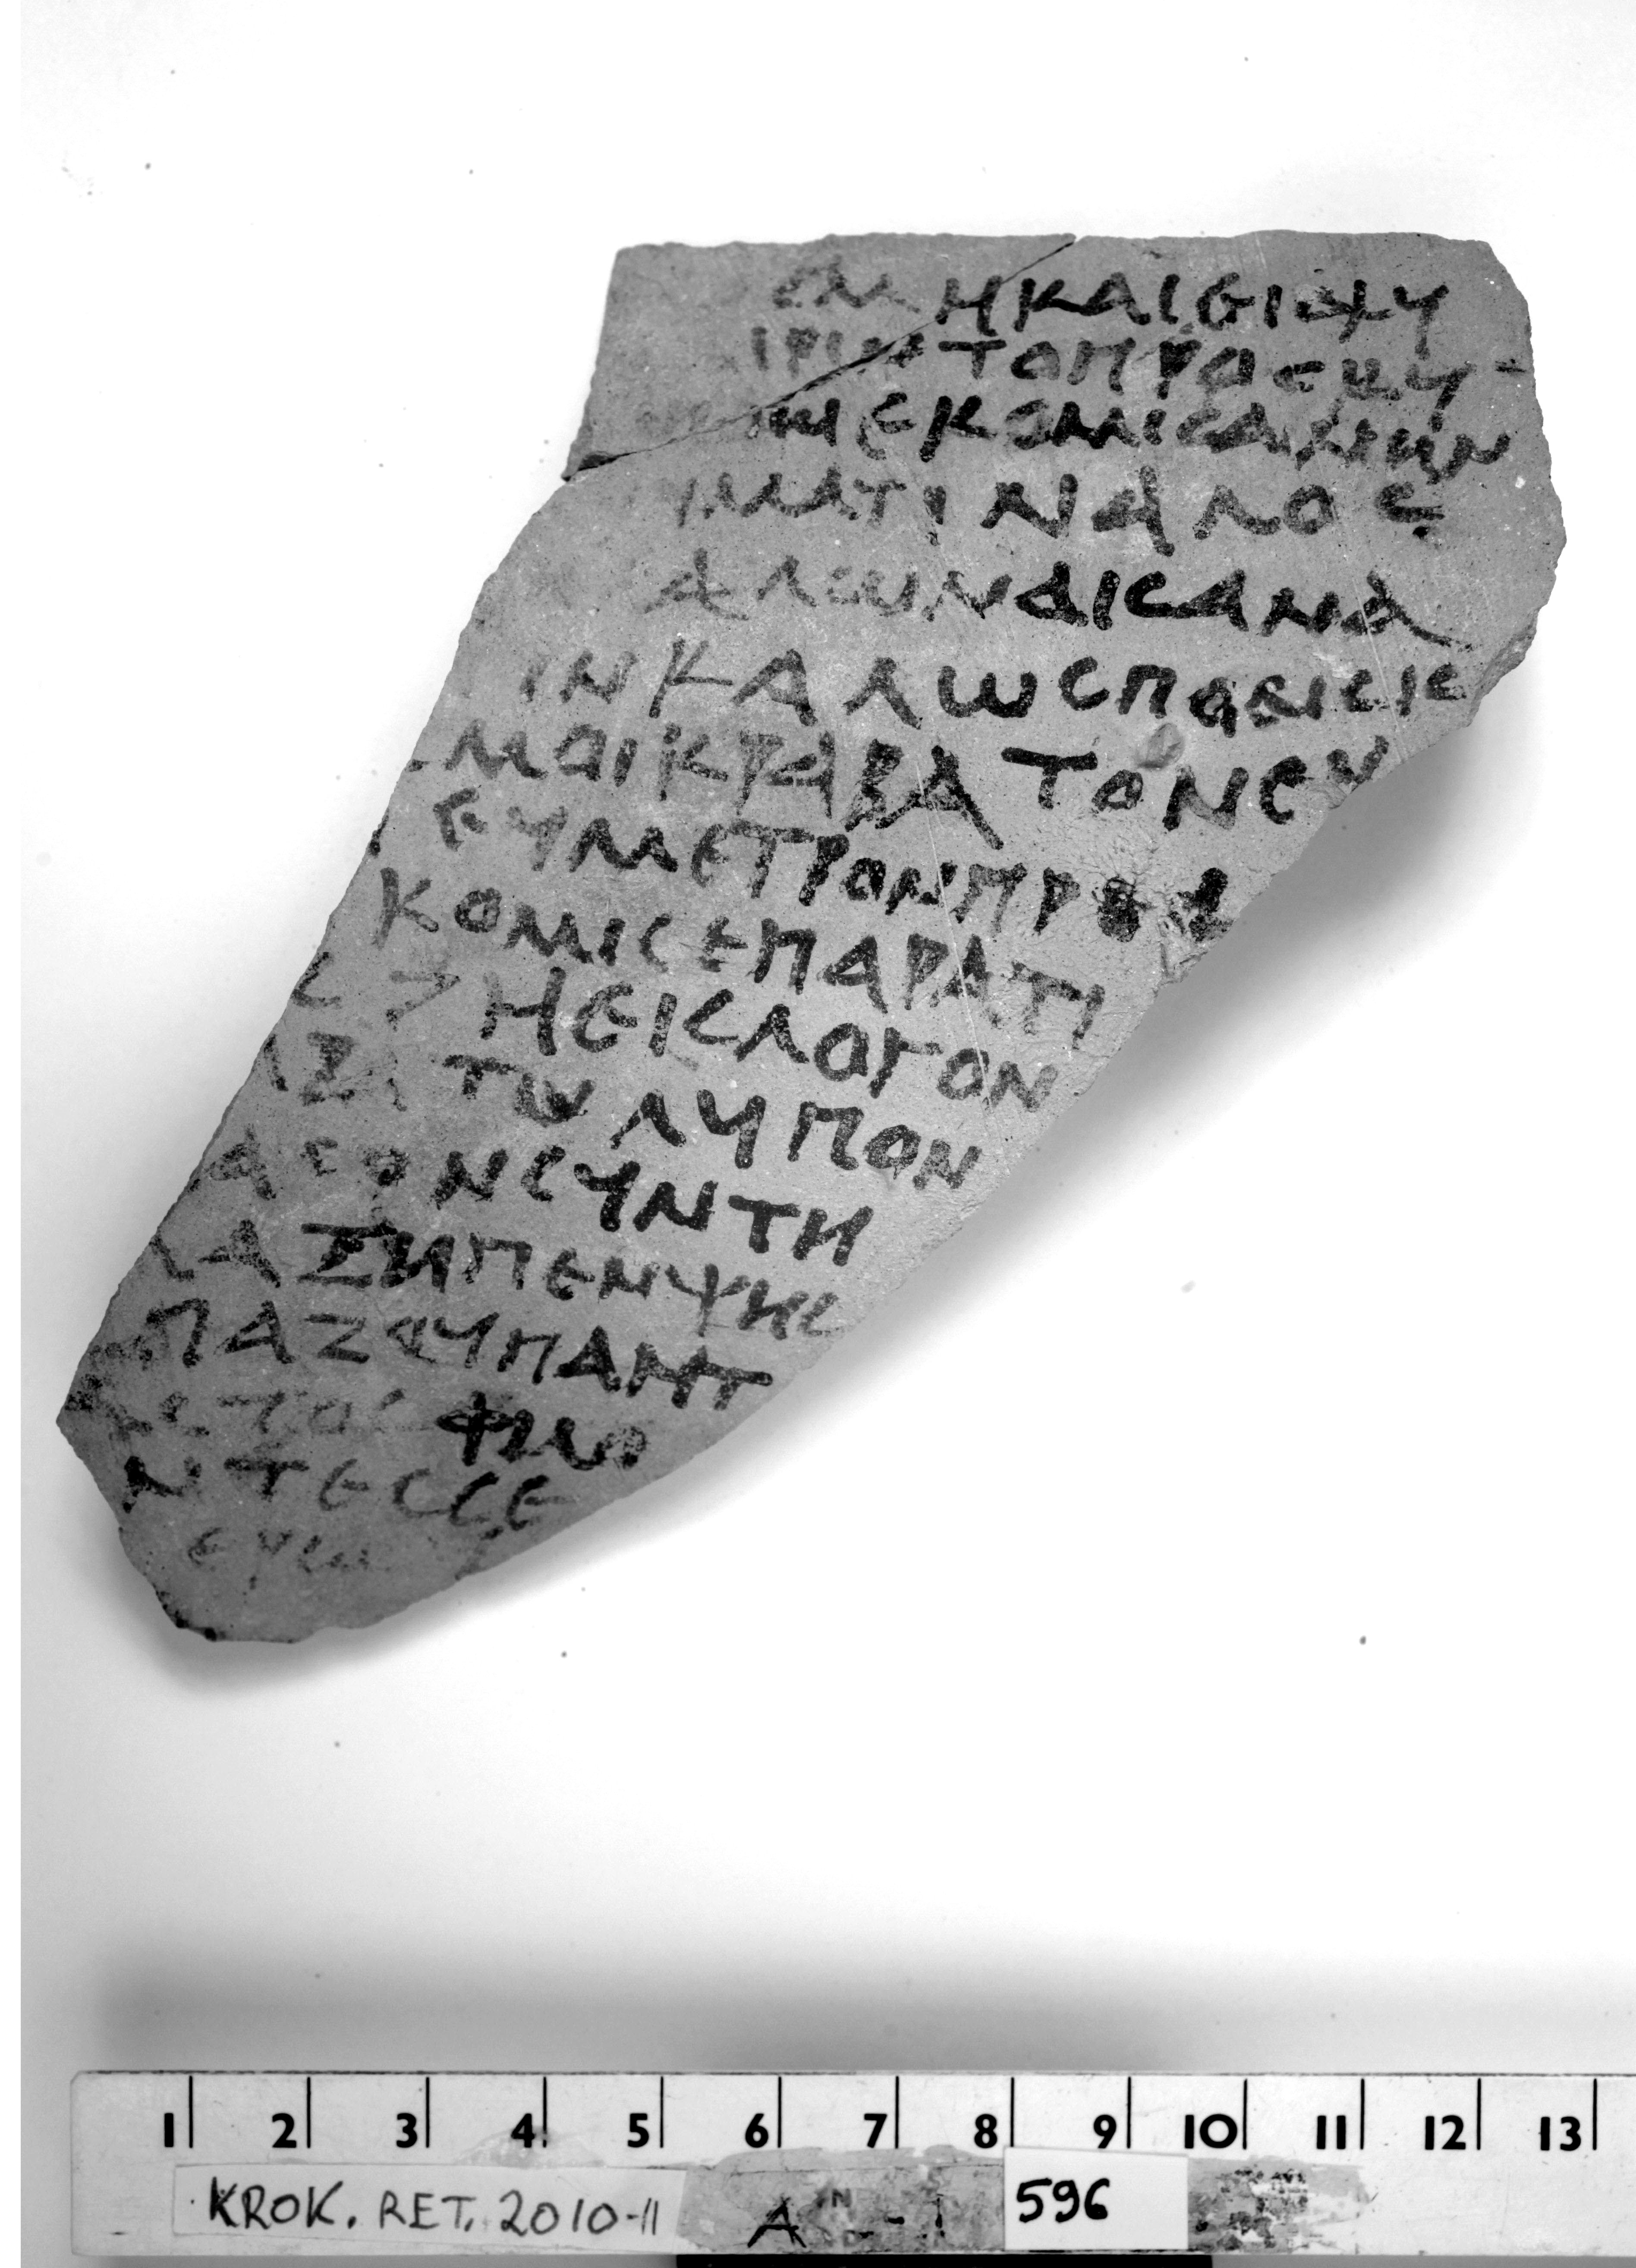 ΗΚΑΙΘΙΑΨΥ
ΙΡΙΝΤΟΠΡΟΣΚΥ
ΕΚΟΜΙΣΑΜΗΝ
ΜΑΤΙΝΑΛΟΣ
ΑΛΩΝΑΙΣΑΝΑ
ΙΝΚΑΛΩΣΠΟΙΣΙΣ
ΜΟΙΚΡΑΒΑΤΟΝΣΥ
ΣΥΜΕΤΡΟΝΠΡΟ
ΚΟΜΙΣΕΠΑΡΑΤΙ
ΗΕΙΣΛΟΓΟΝ
ΤΩΛΥΠΟΝ
ΑΣΟΝΣΥΝΤΗ
ΛΑΞΗΠΕΝΨΗΣ
ΠΑΖΟΥΠΑΝΤ
ΝΤΕΣΣΕ
ΕΡΩ
1 2 3 4 5 6 7 8 9 10 11 12 13
KROK. RET. 2010-11 596